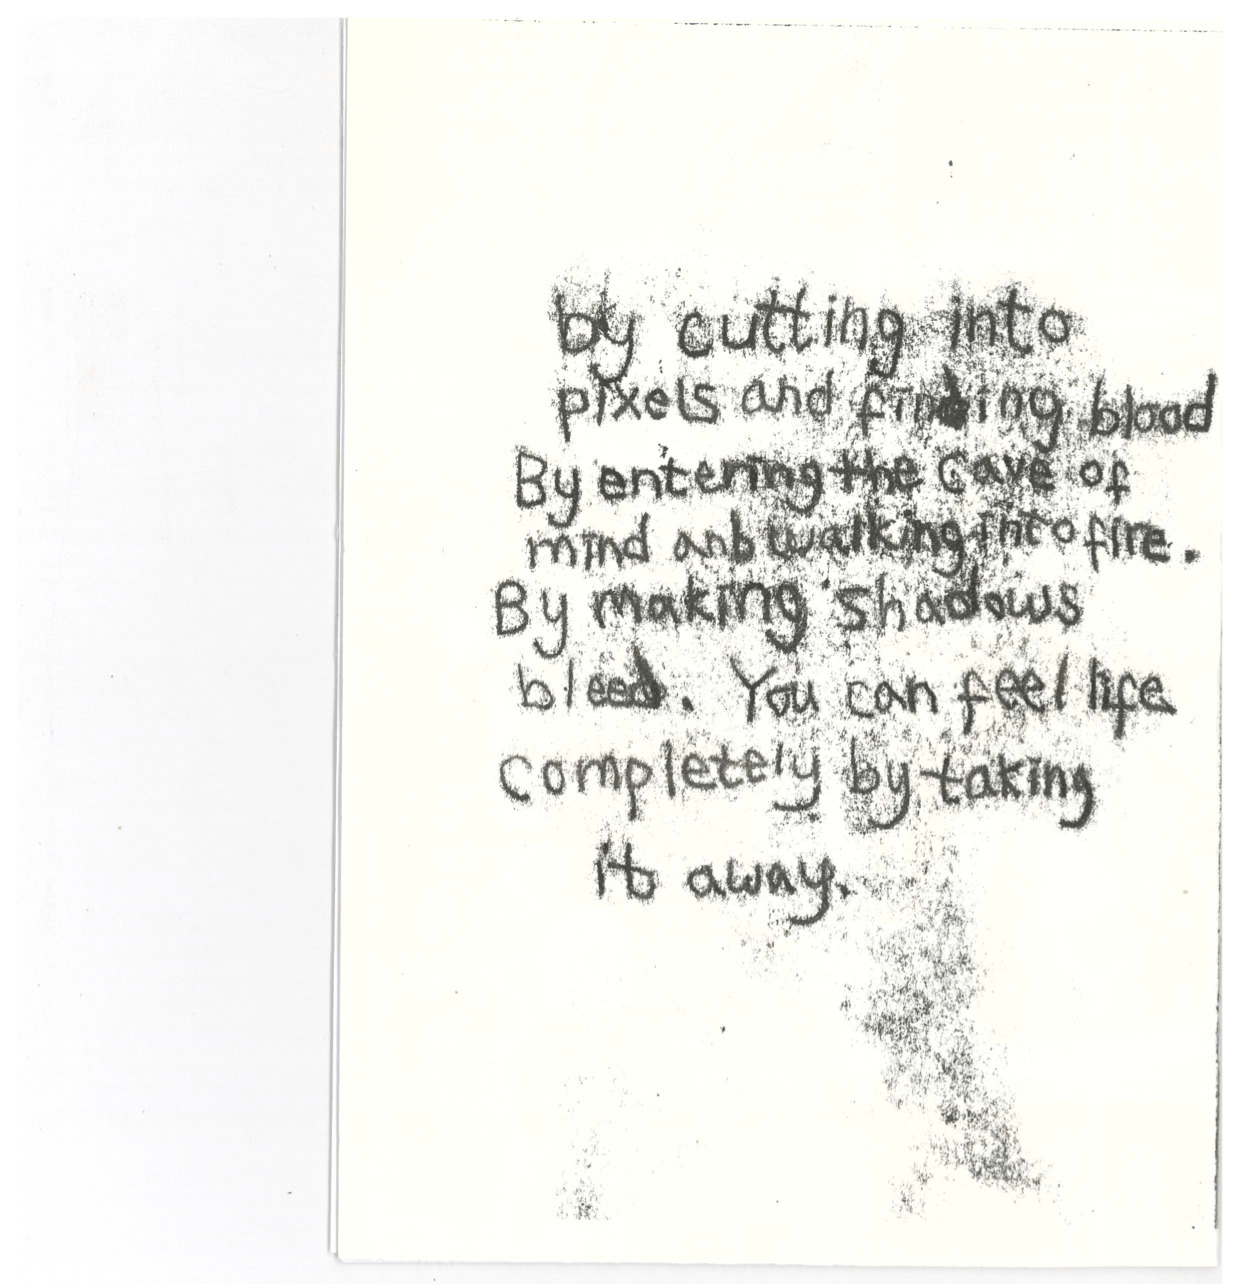 by cutting into
pixels and finding blood
By entering the cave of
mind and walking into fire.
By making shadows
bleed. You can feel life
completely by taking
it away.